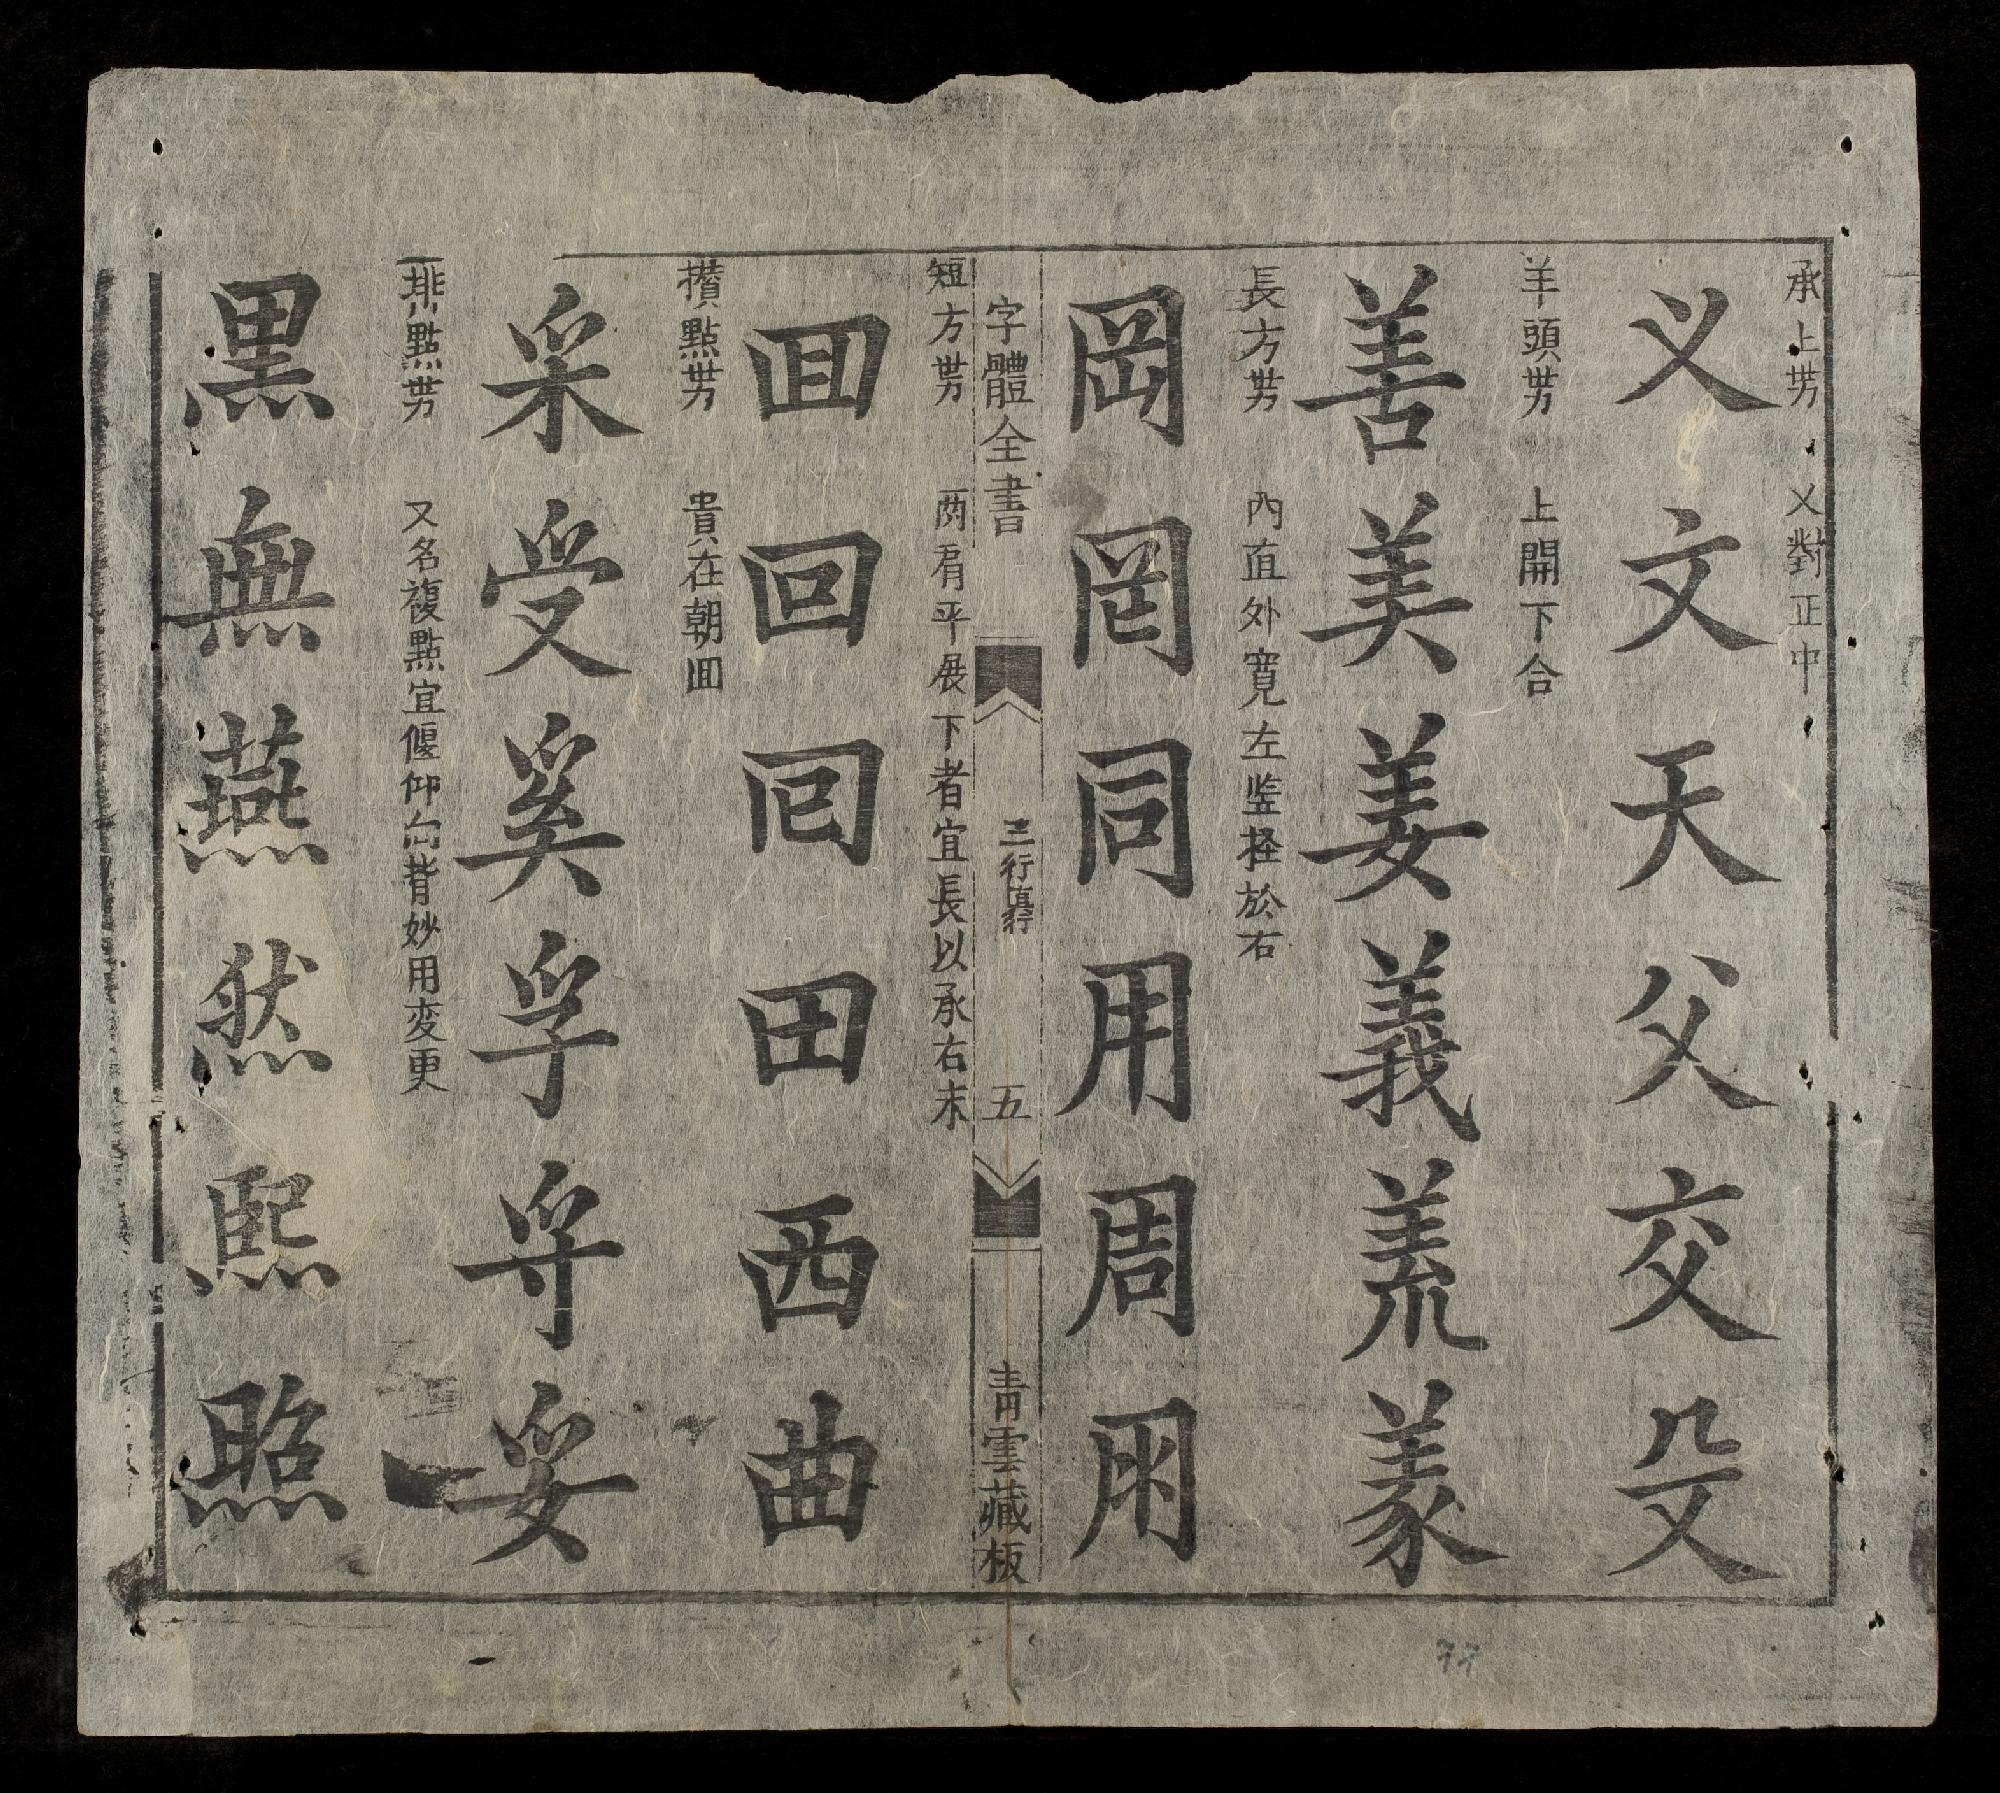 承上势 乂對正中
义文天父交殳
羊頭势 上開下合
善美姜義羨
長方势 內直外寛左監於右
岡罔同用周用
字體全書 三行真行 五 青雲藏板
短方势 两肩平展下者宜長以承右末
回回田西曲
攅點势 貴在朝囬
采受奚孚妥
排點势 又名複點宜偃仰向背妙用変更
黒無燕然熙照